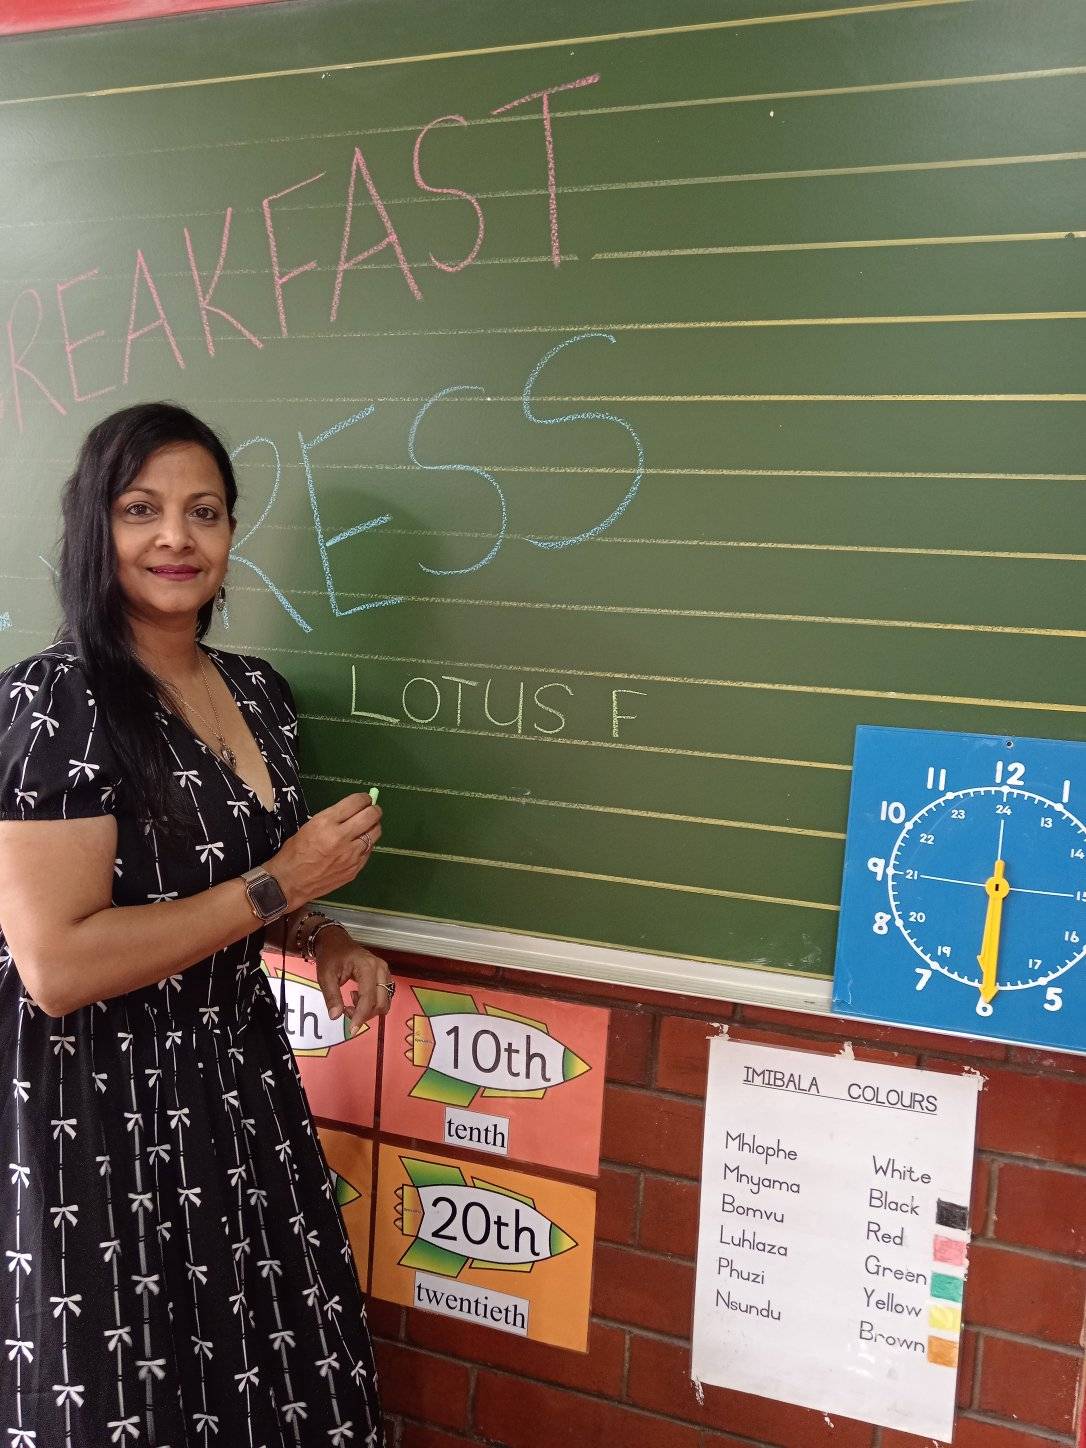 BREAKFAST
RESS
LOTUS F
11 12 1
10 23 24 13
22 14
9 21 15
8 20 16
7 19 17 5
6
th
10th
tenth
20th
twentieth
IMIBALA COLOURS
Mhlophe White
Mnyama Black
Bomvu Red
Luhlaza Green
Phuzi Yellow
Nsundu Brown